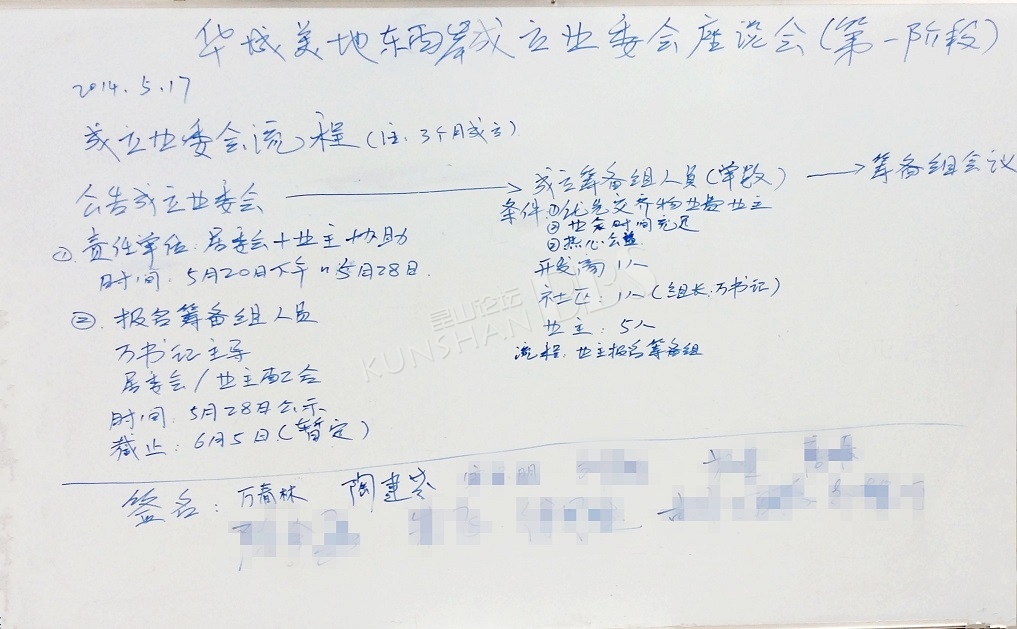 华城美地东西岸成立业委会座谈会(第一阶段)
2014.5.17
成立业委会流程(注:3个月成立)
公告成立业委会 → 成立筹备组人员(单数) → 筹备组会议
条件:①优先交齐物业费业主
②业余时间充足
③热心公益
开发商 1人
社区:1人(组长:万书记)
业主:5人
流程:业主报名筹备组
①责任单位:居委会+业主协助
时间:5月20日下午~5月28日
②.报名筹备组人员
万书记主导
居委会/业主配合
时间:5月28日公示
截止:6月5日(暂定)
签名:万春林 陶建
昆山论坛
KUNSHAN BBS